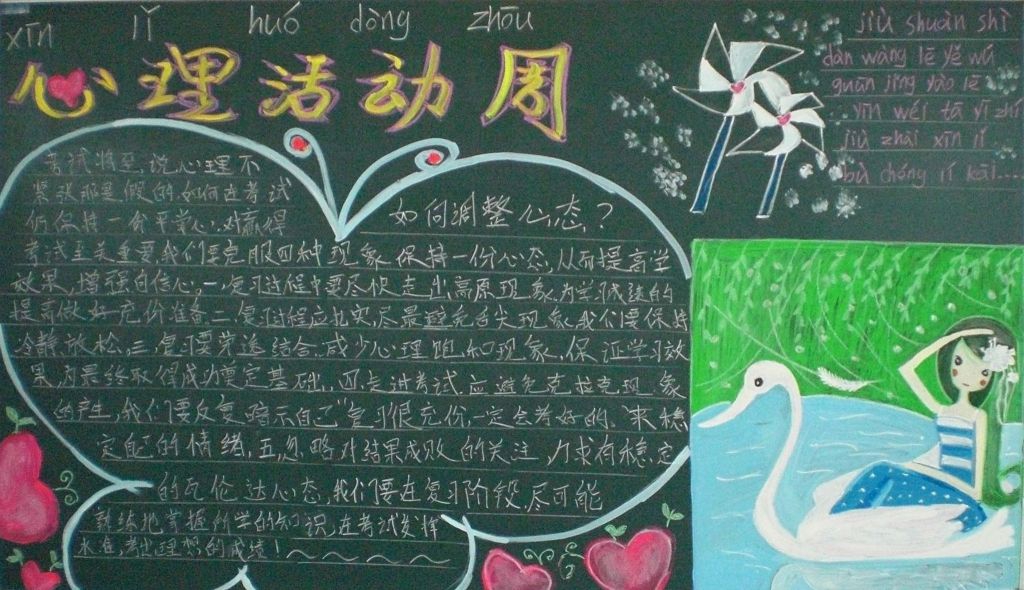 xīn lǐ huó dòng zhōu
心理活动周
jiù shuàn shì
dàn wàng lē yě wú
guān jǐng yào lē
yīn wéi tā yǐ zhí
jiù zhāi xīn lǐ
bù chóng lǐ kāi....
考试将至,说心理不
紧张那是假的.如何在考试
仍保持一份平常心.对赢得
如何调整心态?
考试至关重要,我们要克服四种现象,保持一份心态,从而提高学
效果,增强自信心,一复习过程中要尽快走出高原现象,为学习成绩的
提高做好充份准备二复习过程应扎实,尽量避免舌尖现象,我们要保持
冷静放松,三.复习要劳逸结合.减少心理饱和现象,保证学习效
果,为最终取得成功奠定基础,四.去讲考试应避免克拉克现象
的产生,我们要反复暗示自己"复习很充份,一定会考好的,来稳
定自己的情绪,五.忽略对结果成败的关注,力求有稳定
的瓦伦达心态,我们要在复习阶段,尽可能
熟练地掌握所学的知识,在考试发挥
水准,考出理想的成绩!